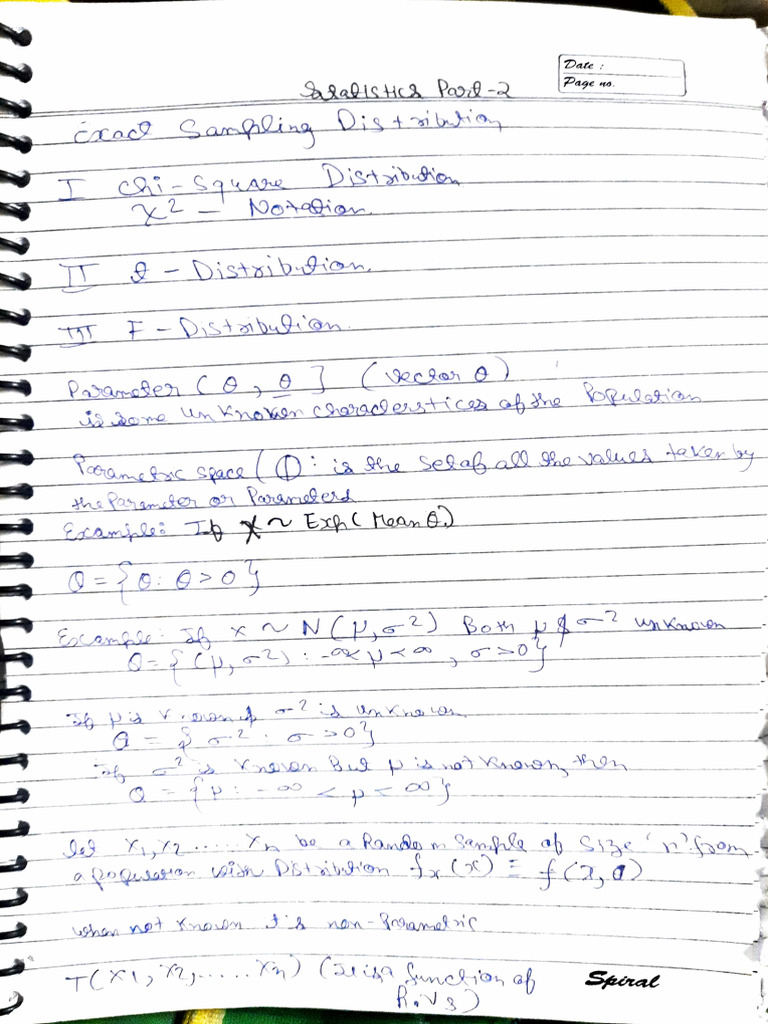 Date :
Page no.
Statistics Part-2
Exact Sampling Distribution
I Chi-Square Distribution
χ2 - Notation
II t - Distribution.
III F - Distribution.
Parameter (θ, θ] (vector θ)
is some unknown characterstices of the Population
Parametric space (Θ: is the set of all the values taken by
the Parameter or Parameters
Example: If X ~ Exp(Mean θ)
Θ = {θ: θ > 0}
Example: If x ~ N(μ, σ2) Both μ & σ2 unknown
Θ = {(μ, σ2) : -∞ < μ < ∞, σ > 0}
If μ is known & σ2 is unknown
Θ = {σ2 : σ > 0}
If σ2 is known But μ is not known, then
Θ = {μ : -∞ < μ < ∞}
let x1, x2 ..... xn be a Random sample of size 'n' from
a population with Distribution fx(x) ≡ f(x, θ)
when not known it is non-Parametric
T(x1, x2, ..... xn) (It is a function of
R.Vs)
Spiral